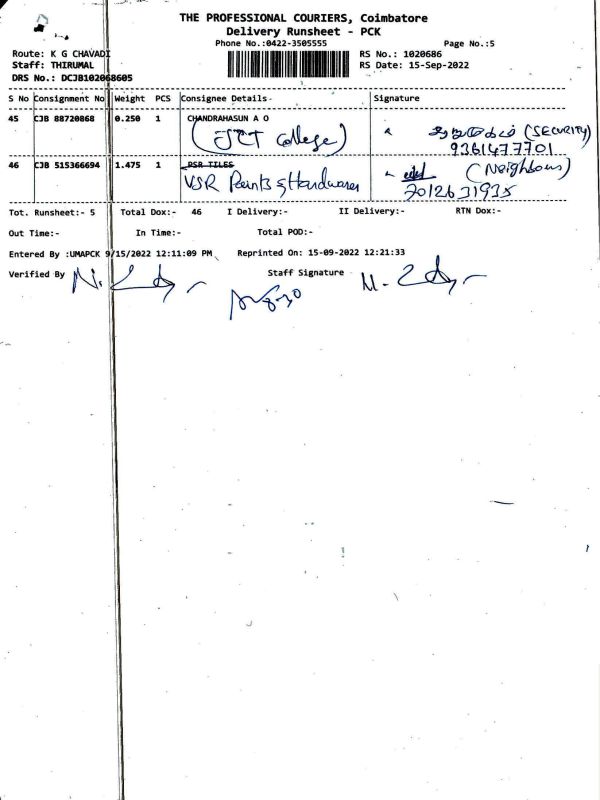 THE PROFESSIONAL COURIERS, Coimbatore
Delivery Runsheet - PCK
Phone No.:0422-3505555 Page No.:5
Route: K G CHAVADI RS No.: 1020686
Staff: THIRUMAL RS Date: 15-Sep-2022
DRS No.: DCJB102068605
S No Consignment No Weight PCS Consignee Details Signature
45 CJB 88720868 0.250 1 CHANDRAHASUN A O
(JCT College) (SECURITY)
9361477701
46 CJB 515366694 1.475 1 PSR TILES (Neighbour)
VSR Paints & Hardwares 7012631935
Tot. Runsheet:- 5 Total Dox:- 46 I Delivery:- II Delivery:- RTN Dox:-
Out Time:- In Time:- Total POD:-
Entered By :UMAPCK 9/15/2022 12:11:09 PM Reprinted On: 15-09-2022 12:21:33
Verified By Staff Signature